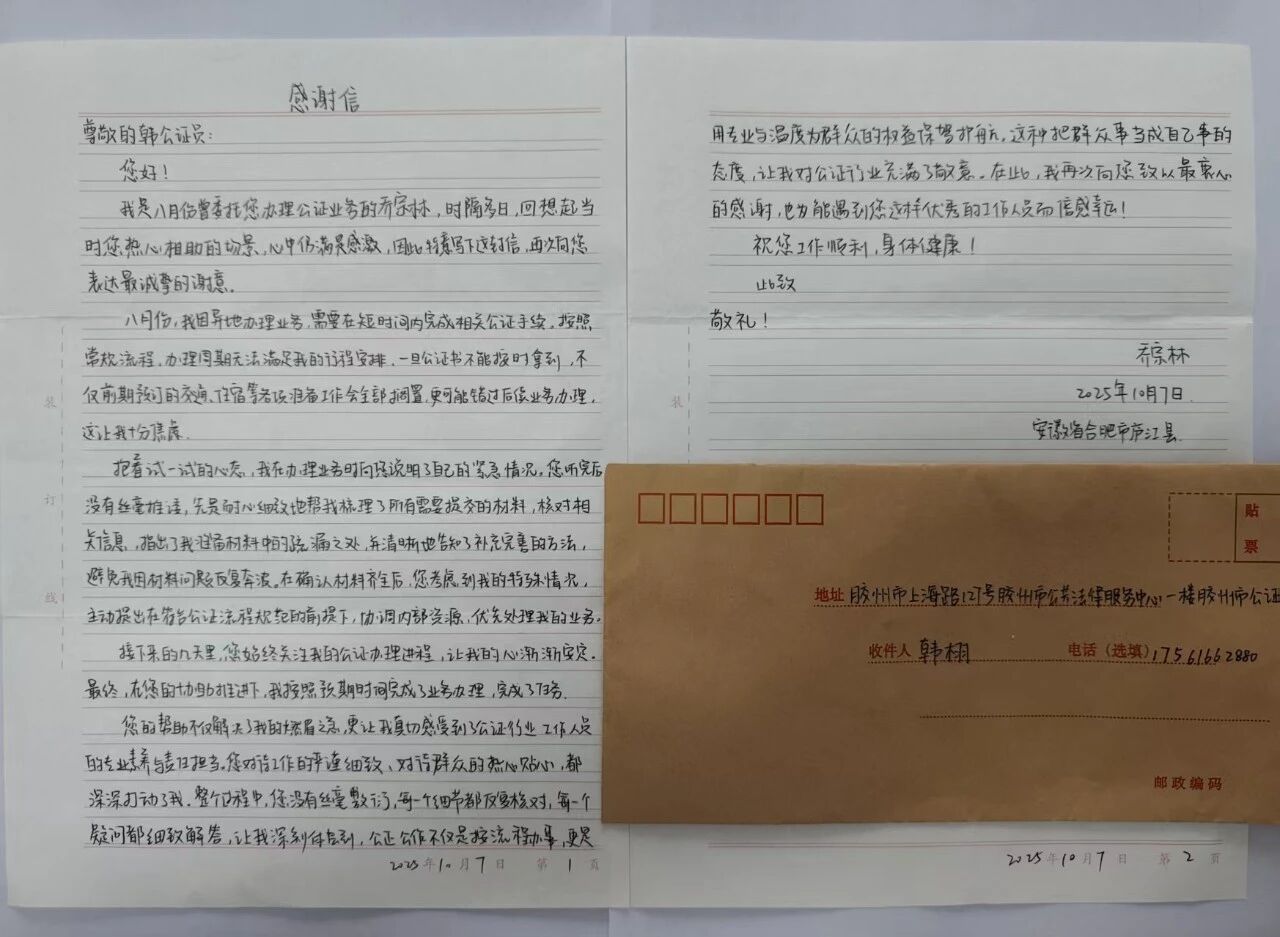 感谢信
尊敬的韩公证员：
您好！
我是八月份曾委托您办理公证业务的乔宗林，时隔多日，回想起当
时您热心相助的场景，心中仍满是感激，因此特意写下这封信，再次向您
表达最诚挚的谢意。
八月份，我因异地办理业务，需要在短时间内完成相关公证手续。按照
常规流程，办理周期无法满足我的行程安排，一旦公证书不能按时拿到，不
仅前期预订的交通、住宿等各项准备工作会全部搁置，更可能错过后续业务办理，
这让我十分焦虑。
抱着试一试的心态，我在办理业务时向您说明了自己的紧急情况。您听完后
没有丝毫推诿，先是耐心细致地帮我梳理了所有需要提交的材料，核对相
关信息，指出了我准备材料中的疏漏之处，并清晰地告知了补充完善的方法，
避免我因材料问题反复奔波。在确认材料齐全后，您考虑到我的特殊情况，
主动提出在符合公证流程规范的前提下，协调内部资源，优先处理我的业务。
接下来的几天里，您始终关注我的公证办理进程，让我的心渐渐安定。
最终，在您的协助推进下，我按照预期时间完成了业务办理，完成了任务。
您的帮助不仅解决了我的燃眉之急，更让我真切感受到了公证行业工作人员
的专业素养与责任担当。您对待工作的严谨细致、对待群众的热心贴心，都
深深打动了我。整个过程中，您没有丝毫敷衍，每一个细节都反复核对，每一个
疑问都细致解答，让我深刻体会到，公证工作不仅是按流程办事，更是
2025年10月7日 第1页
用专业与温度为群众的权益保驾护航。这种把群众事当成自己事的
态度，让我对公证行业充满了敬意。在此，我再次向您致以最衷心
的感谢，也为能遇到您这样优秀的工作人员而倍感幸运！
祝您工作顺利，身体健康！
此致
敬礼！
乔宗林
2025年10月7日
安徽省合肥市庐江县
2025年10月7日 第2页
装
订
线
装
贴
票
地址 胶州市上海路127号胶州市公共法律服务中心一楼胶州市公证
收件人 韩栩 电话（选填）17561662880
邮政编码